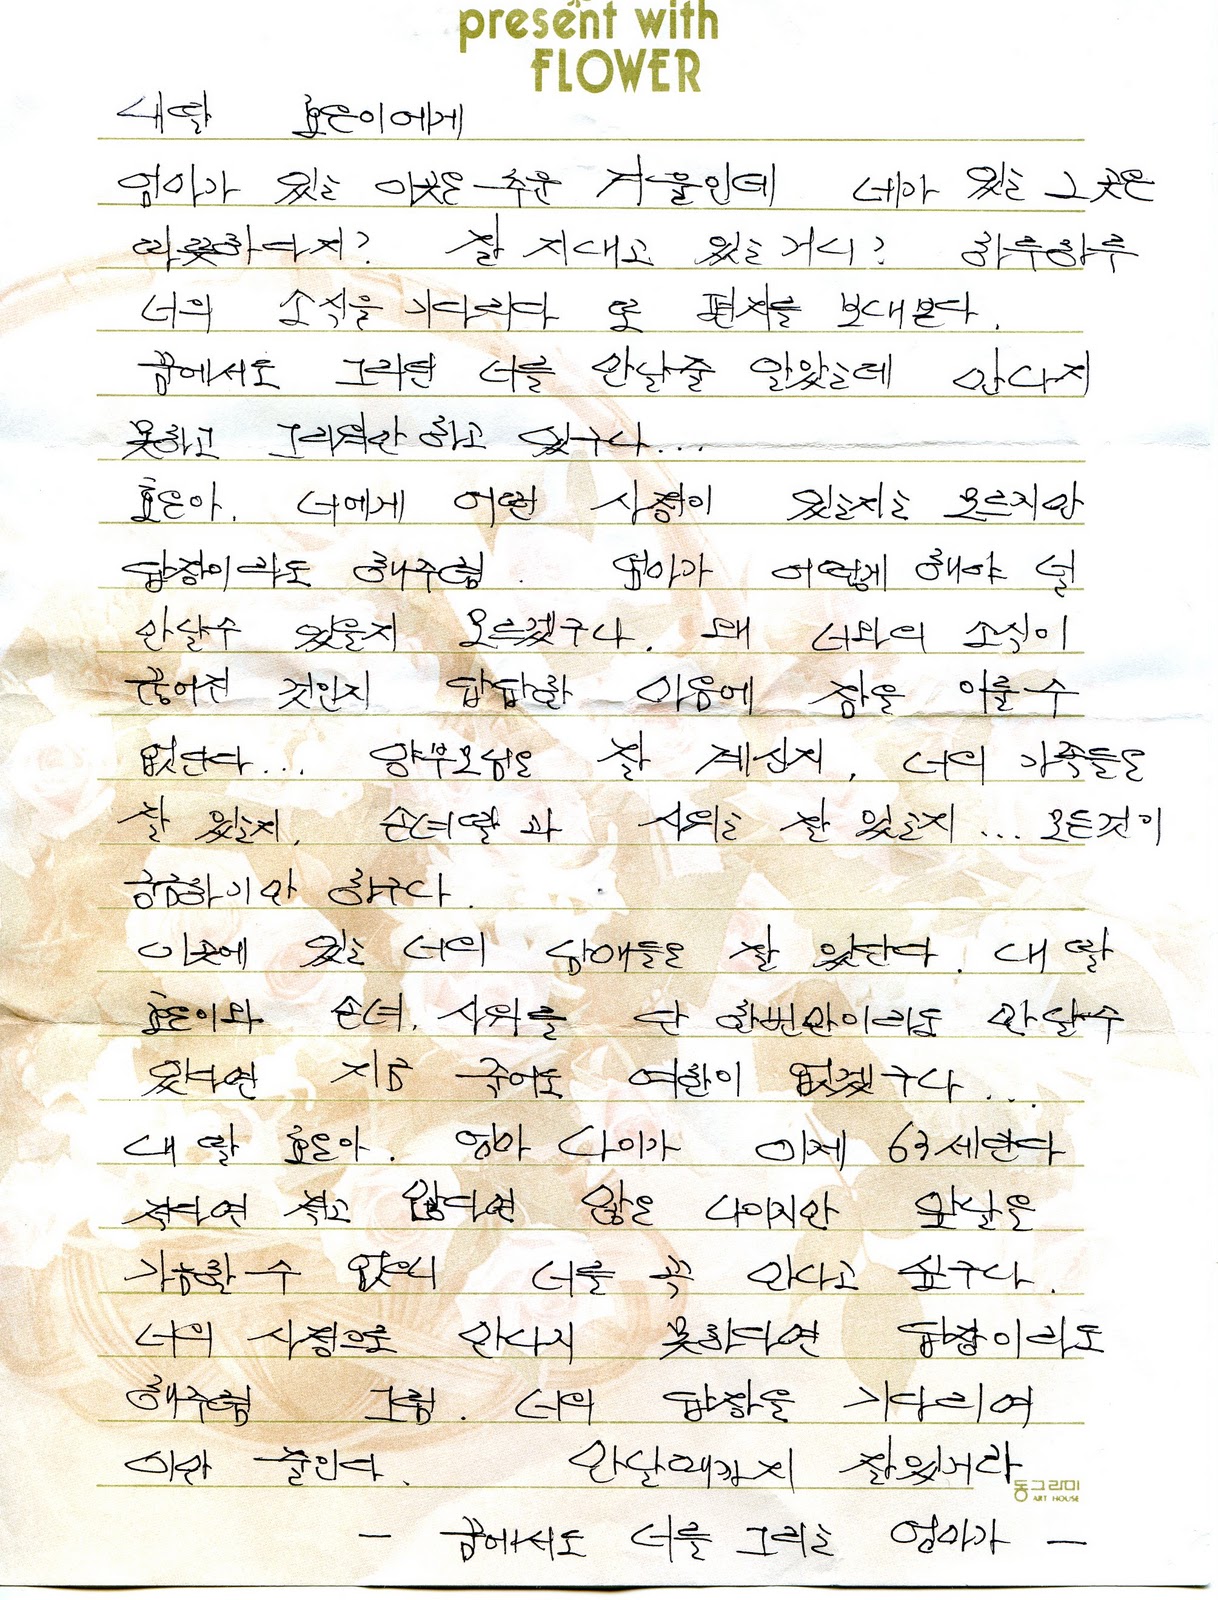 present with
FLOWER
내딸 효은이에게
엄마가 있는 이곳은 추운 겨울인데 네가 있는 그곳은
따뜻하는지? 잘 지내고 있는거니? 하루하루
너의 소식을 기다리다 또 편지를 보내본다.
꿈에서도 그리던 너를 만날줄 알았는데 만나지
못하고 그리워만 하고 있구나...
효은아. 너에게 어떤 사정이 있는지는 모르지만
답장이라도 해주렴. 엄마가 어떻게 해야 널
만날수 있을지 모르겠구나. 왜 너와의 소식이
끊어진 것인지 답답한 마음에 잠을 이룰수
없단다... 양부모님은 잘 계신지, 너의 가족들은
잘 있는지, 손녀딸과 사위는 잘 있는지... 모든것이
궁금하기만 하구나.
이곳에 있는 너의 남매들은 잘 있단다. 내 딸
효은이와 손녀, 사위를 단 한번만이라도 만날수
있다면 지금 죽어도 여한이 없겠구나...
내 딸 효은아. 엄마 나이가 이제 63세란다
적다면 적고 많다면 많은 나이지만 앞날을
가늠할 수 없으니 너를 꼭 만나고 싶구나.
너의 사정으로 만나지 못한다면 답장이라도
해주렴 그럼. 너의 답장을 기다리며
이만 줄인다. 만날때까지 잘있거라
동그라미
ART HOUSE
- 꿈에서도 너를 그리는 엄마가 -